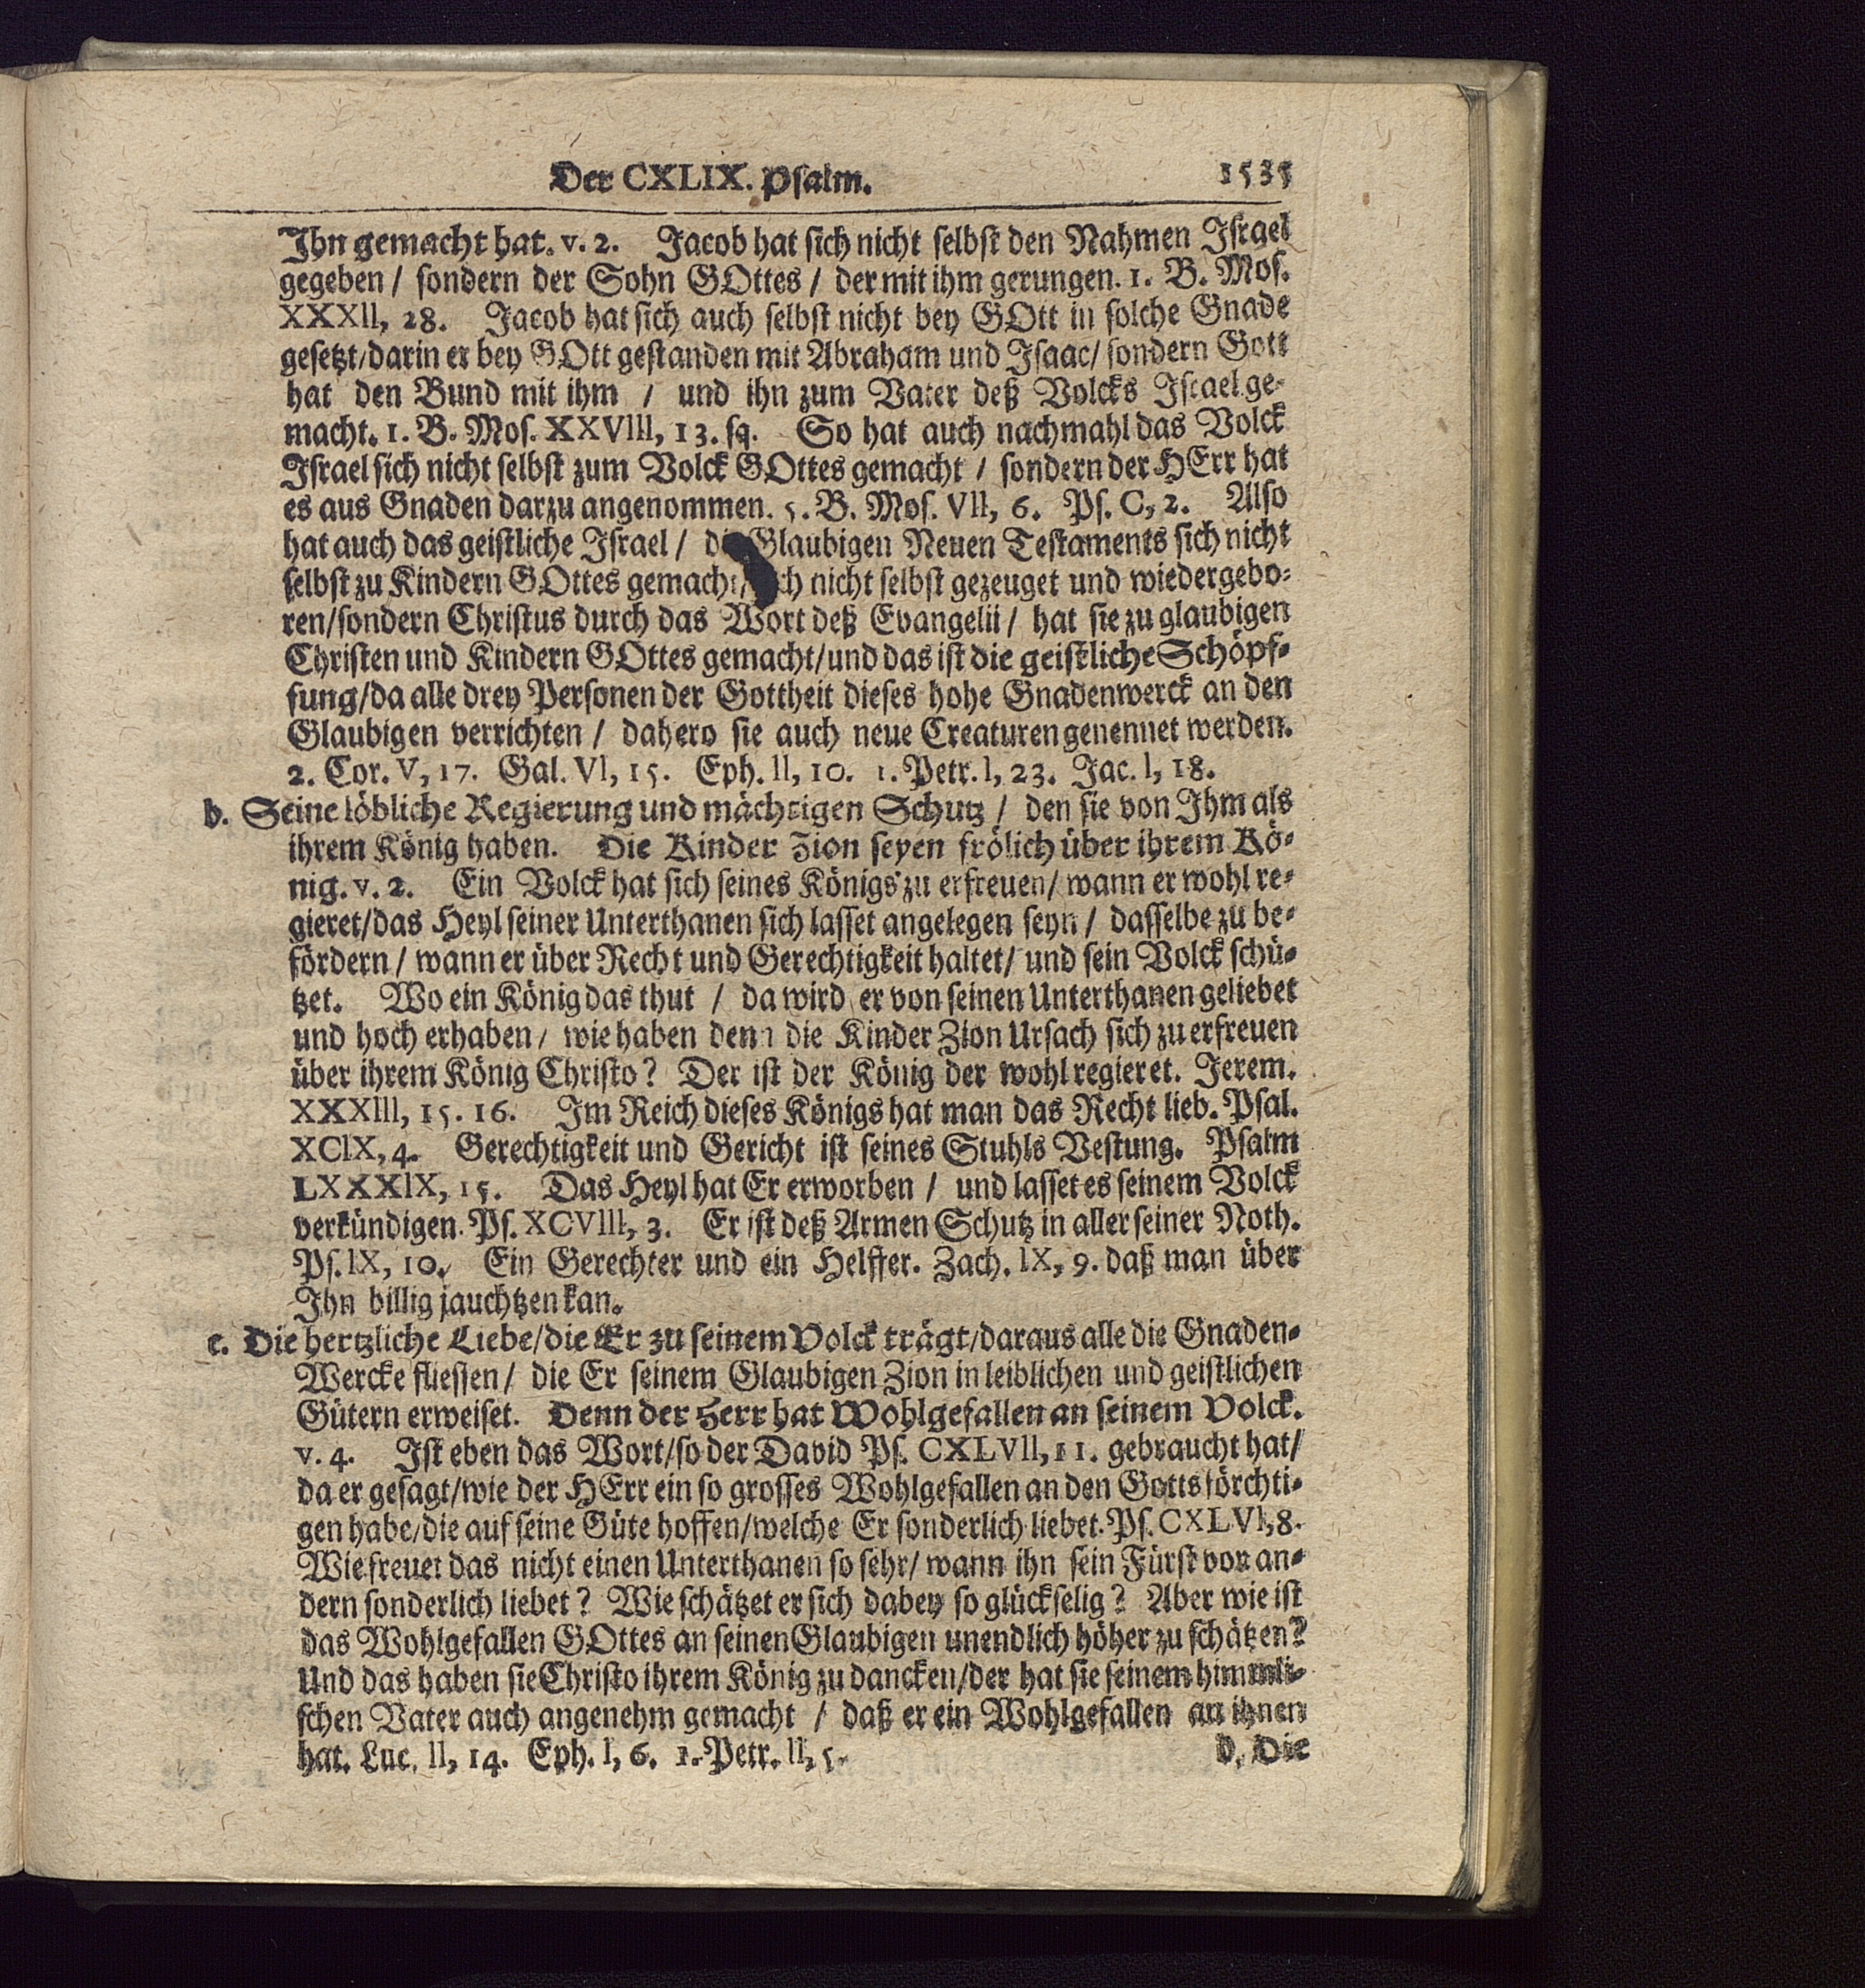 Der CXLIX. Psalm. 1535
Ihn gemacht hat. v. 2. Jacob hat sich nicht selbst den Nahmen Israel
gegeben / sondern der Sohn GOttes / der mit ihm gerungen. 1. B. Mos.
XXXII, 28. Jacob hat sich auch selbst nicht bey GOtt in solche Gnade
gesetzt/darin er bey GOtt gestanden mit Abraham und Isaac/ sondern Gott
hat den Bund mit ihm / und ihn zum Vater deß Volcks Israel ge-
macht. 1. B. Mos. XXVIII, 13. sq. So hat auch nachmahl das Volck
Israel sich nicht selbst zum Volck GOttes gemacht / sondern der HErr hat
es aus Gnaden darzu angenommen. 5. B. Mos. VII, 6. Ps. C, 2. Also
hat auch das geistliche Israel / die Glaubigen Neuen Testaments sich nicht
selbst zu Kindern GOttes gemacht/ nicht selbst gezeuget und wiedergebo-
ren/sondern Christus durch das Wort deß Evangelii / hat sie zu glaubigen
Christen und Kindern GOttes gemacht/und das ist die geistliche Schöpf-
fung/da alle drey Personen der Gottheit dieses hohe Gnadenwerck an den
Glaubigen verrichten / dahero sie auch neue Creaturen genennet werden.
2. Cor. V, 17. Gal. VI, 15. Eph. II, 10. 1. Petr. I, 23. Jac. I, 18.
b. Seine löbliche Regierung und mächtigen Schutz / den sie von Ihm als
ihrem König haben. Die Kinder Zion seyen frölich über ihrem Kö-
nig. v. 2. Ein Volck hat sich seines Königs zu erfreuen/ wann er wohl re-
gieret/das Heyl seiner Unterthanen sich lasset angelegen seyn / dasselbe zu be-
fördern / wann er über Recht und Gerechtigkeit haltet/ und sein Volck schü-
tzet. Wo ein König das thut / da wird er von seinen Unterthanen geliebet
und hoch erhaben / wie haben denn die Kinder Zion Ursach sich zu erfreuen
über ihrem König Christo? Der ist der König der wohl regieret. Jerem.
XXXIII, 15. 16. Im Reich dieses Königs hat man das Recht lieb. Psal.
XCIX, 4. Gerechtigkeit und Gericht ist seines Stuhls Vestung. Psalm
LXXXIX, 15. Das Heyl hat Er erworben / und lasset es seinem Volck
verkündigen. Ps. XCVIII, 3. Er ist deß Armen Schutz in aller seiner Noth.
Ps. IX, 10. Ein Gerechter und ein Helffer. Zach. IX, 9. daß man über
Ihn billig jauchtzen kan.
c. Die hertzliche Liebe/die Er zu seinem Volck trägt/daraus alle die Gnaden-
Wercke fliessen / die Er seinem Glaubigen Zion in leiblichen und geistlichen
Gütern erweiset. Denn der Herr hat Wohlgefallen an seinem Volck.
v. 4. Ist eben das Wort/so der David Ps. CXLVII, 11. gebraucht hat/
da er gesagt/wie der HErr ein so grosses Wohlgefallen an den Gottsförchti-
gen habe/die auf seine Güte hoffen/welche Er sonderlich liebet. Ps. CXLVI, 8.
Wie freuet das nicht einen Unterthanen so sehr/ wann ihn sein Fürst vor an-
dern sonderlich liebet? Wie schätzet er sich dabey so glückselig? Aber wie ist
das Wohlgefallen GOttes an seinen Glaubigen unendlich höher zu schätzen?
Und das haben sie Christo ihrem König zu dancken/der hat sie seinem himmli-
schen Vater auch angenehm gemacht / daß er ein Wohlgefallen an ihnen
hat. Luc. II, 14. Eph. I, 6. 1. Petr. II, 5. d. Die